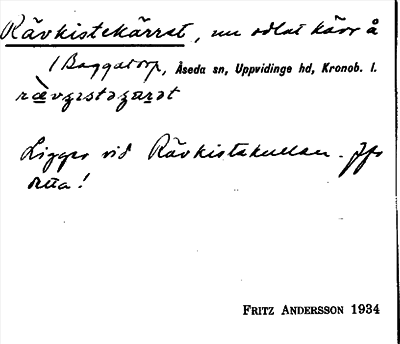 Rävkistekärret, nu odlat kärr å
1 Baggatorp, Åseda sn, Uppvidinge hd, Kronob. l.
Ligger vid Rävkistakullen. Jfr
detta!
FRITZ ANDERSSON 1934